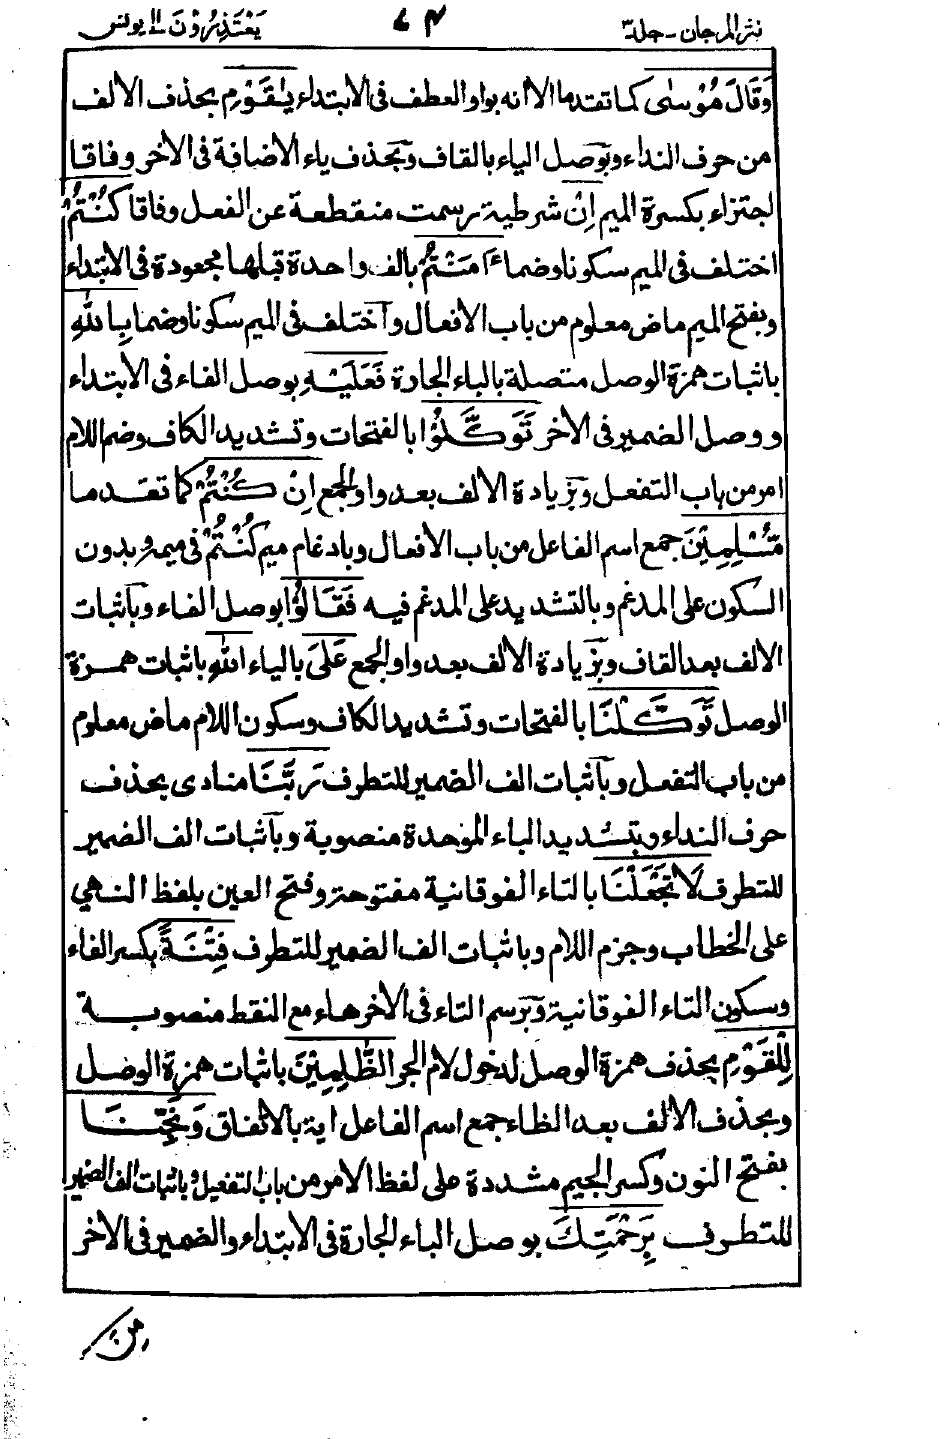 نثر المرجان - جلد ٣ ٧٤ يَعْتَذِرُوْنَ ١١ يونس
وَقَالَ مُوْسٰى كما تقدما الا انه بواو العطف فى الابتداء يٰقَوْمِ بحذف الالف
من حرف النداء وبوصل الياء بالقاف وبحذف ياء الاضافة فى الاخر وفاقا
اجتزاء بكسرة الميم اِنْ شرطية رسمت منقطعة عن الفعل وفاقا كُنْتُمْ
اختلف فى الميم سكونا وضما ءَامَنْتُمْ بالف واحدة قبلها مجعودة فى الابتداء
وبفتح الميم ماض معلوم من باب الافعال واختلف فى الميم سكونا وضما بِاللّٰهِ
باثبات همزة الوصل متصلة بالباء الجارة فَعَلَيْهِ بوصل الفاء فى الابتداء
ووصل الضمير فى الاخر تَوَكَّلُوْا بالفتحات وتشديد الكاف وضم اللام
امر من باب التفعل وبزيادة الالف بعد واو الجمع اِنْ كُنْتُمْ كما تقدما
مُسْلِمِيْنَ جمع اسم الفاعل من باب الافعال وبادغام ميم كُنْتُمْ فى ميمه وبدون
السكون على المدغم وبالتشديد على المدغم فيه فَقَالُوْا بوصل الفاء وباثبات
الالف بعد القاف وبزيادة الالف بعد واو الجمع عَلَى بالياء اللّٰهِ باثبات همزة
الوصل تَوَكَّلْنَا بالفتحات وتشديد الكاف وسكون اللام ماض معلوم
من باب التفعل وباثبات الف الضمير للتطرف رَبَّنَا منادى بحذف
حرف النداء وبتشديد الباء الموحدة منصوبة وباثبات الف الضمير
للتطرف لَا تَجْعَلْنَا بالتاء الفوقانية مفتوحة وفتح العين بلفظ النهي
على الخطاب وجزم اللام وباثبات الف الضمير للتطرف فِتْنَةً بكسر الفاء
وسكون التاء الفوقانية وبرسم التاء فى الاخر هاء مع النقط منصوبة
لِلْقَوْمِ بحذف همزة الوصل لدخول لام الجر الظّٰلِمِيْنَ باثبات همزة الوصل
وبحذف الالف بعد الظاء جمع اسم الفاعل اية بالاتفاق وَنَجِّنَا
بفتح النون وكسر الجيم مشددة على لفظ الامر من باب التفعيل وباثبات الف الضمير
للتطرف بِرَحْمَتِكَ بوصل الباء الجارة فى الابتداء والضمير فى الاخر
من